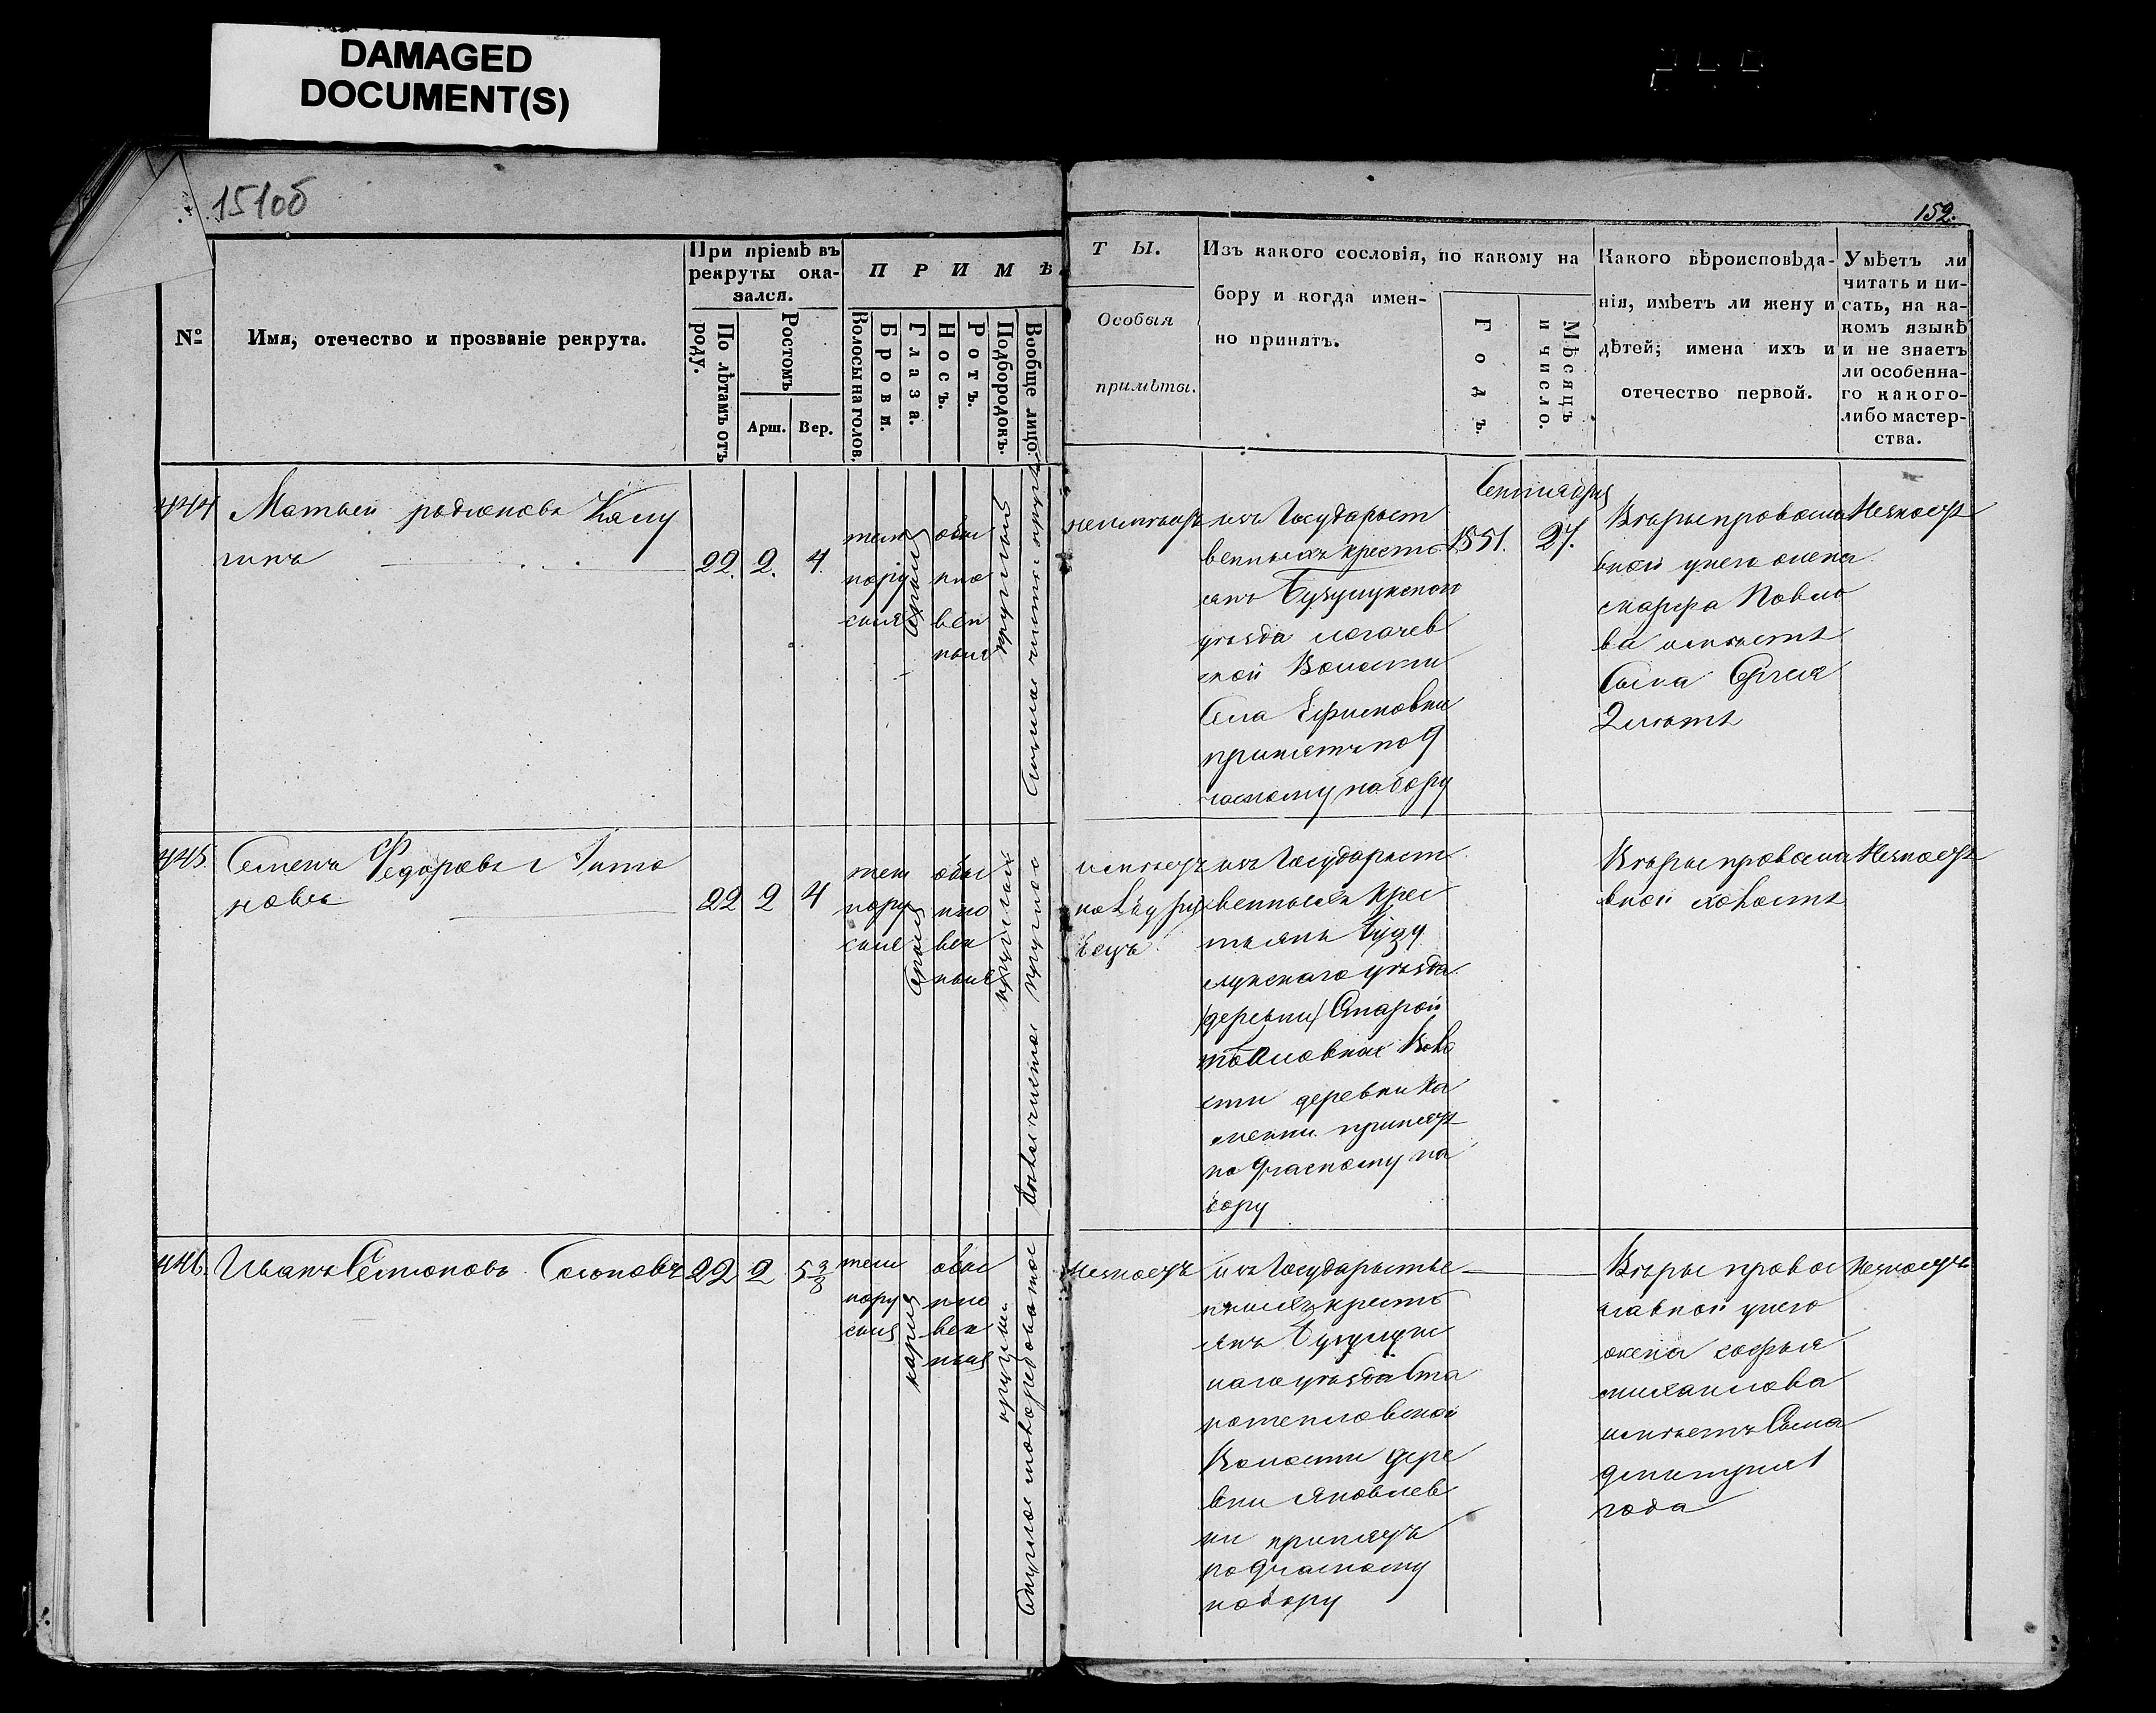 DAMAGED
DOCUMENT(S)
151об
152.
№
Имя, отечество и прозваніе рекрута.
При пріемѣ въ
рекруты ока-
зался.
По лѣтамъ отъ
роду.
Ростомъ
Арш. Вер.
П Р И М Ѣ
Волосы на голов.
Брови.
Глаза.
Носъ.
Ротъ.
Подбородокъ.
Вообще лицо.
Т Ы.
Особыя
примѣты.
Изъ какого сословія, по какому на
бору и когда имен-
но принятъ.
Годъ.
Мѣсяцъ
и число.
Какого вѣроисповѣда-
нія, имѣетъ ли жену и
дѣтей; имена ихъ и
отечество первой.
Умѣетъ ли
читать и пи-
сать, на ка-
комъ языкѣ
и не знаетъ
ли особенна-
го какого-
либо мастер-
ства.
444 Матвей родионовъ Калу
гинъ
22. 2. 4
темн
нору
сыля
серыя
обы
кно
вен
ныя
круглый
неимѣетъ
изъ Государст
венныхъ кресть
янъ Бузулукскаго
уѣзда
ской Волости
Села Ефимовки
принятъ по 9
частному набору
Сентября
1851. 27.
Вѣры правосла
вной у него жена
марфа Павло
ва имѣетъ
Сына Сергея
2 лѣтъ
445. Семенъ Федоровъ Анто
новъ
22 2 4
темн
нору
сыля
серыя
обы
кно
вен
ныя
круглый
изъ Государст
венныхъ Крес
тьянъ Бузу
лукскаго уѣзда
деревни Старой
Воло
сти деревни Ка
менки принятъ
по 9 частному на
бору
Вѣры правосла
вной холостъ
446. Иванъ Семионовъ Солоновъ
22 2 5 3/8
темн
нору
сыля
карія
обы
кно
вен
ныя
круглый
изъ Государстве
нныхъ кресть
янъ Бузулук
наго уѣзда Ста
ротепловской
Волости дере
вни Яковлев
ки принятъ
по 9 частному
набору
Вѣры право
славной у него
жена софья
михаилова
имѣетъ Сына
дмитрия 1
года